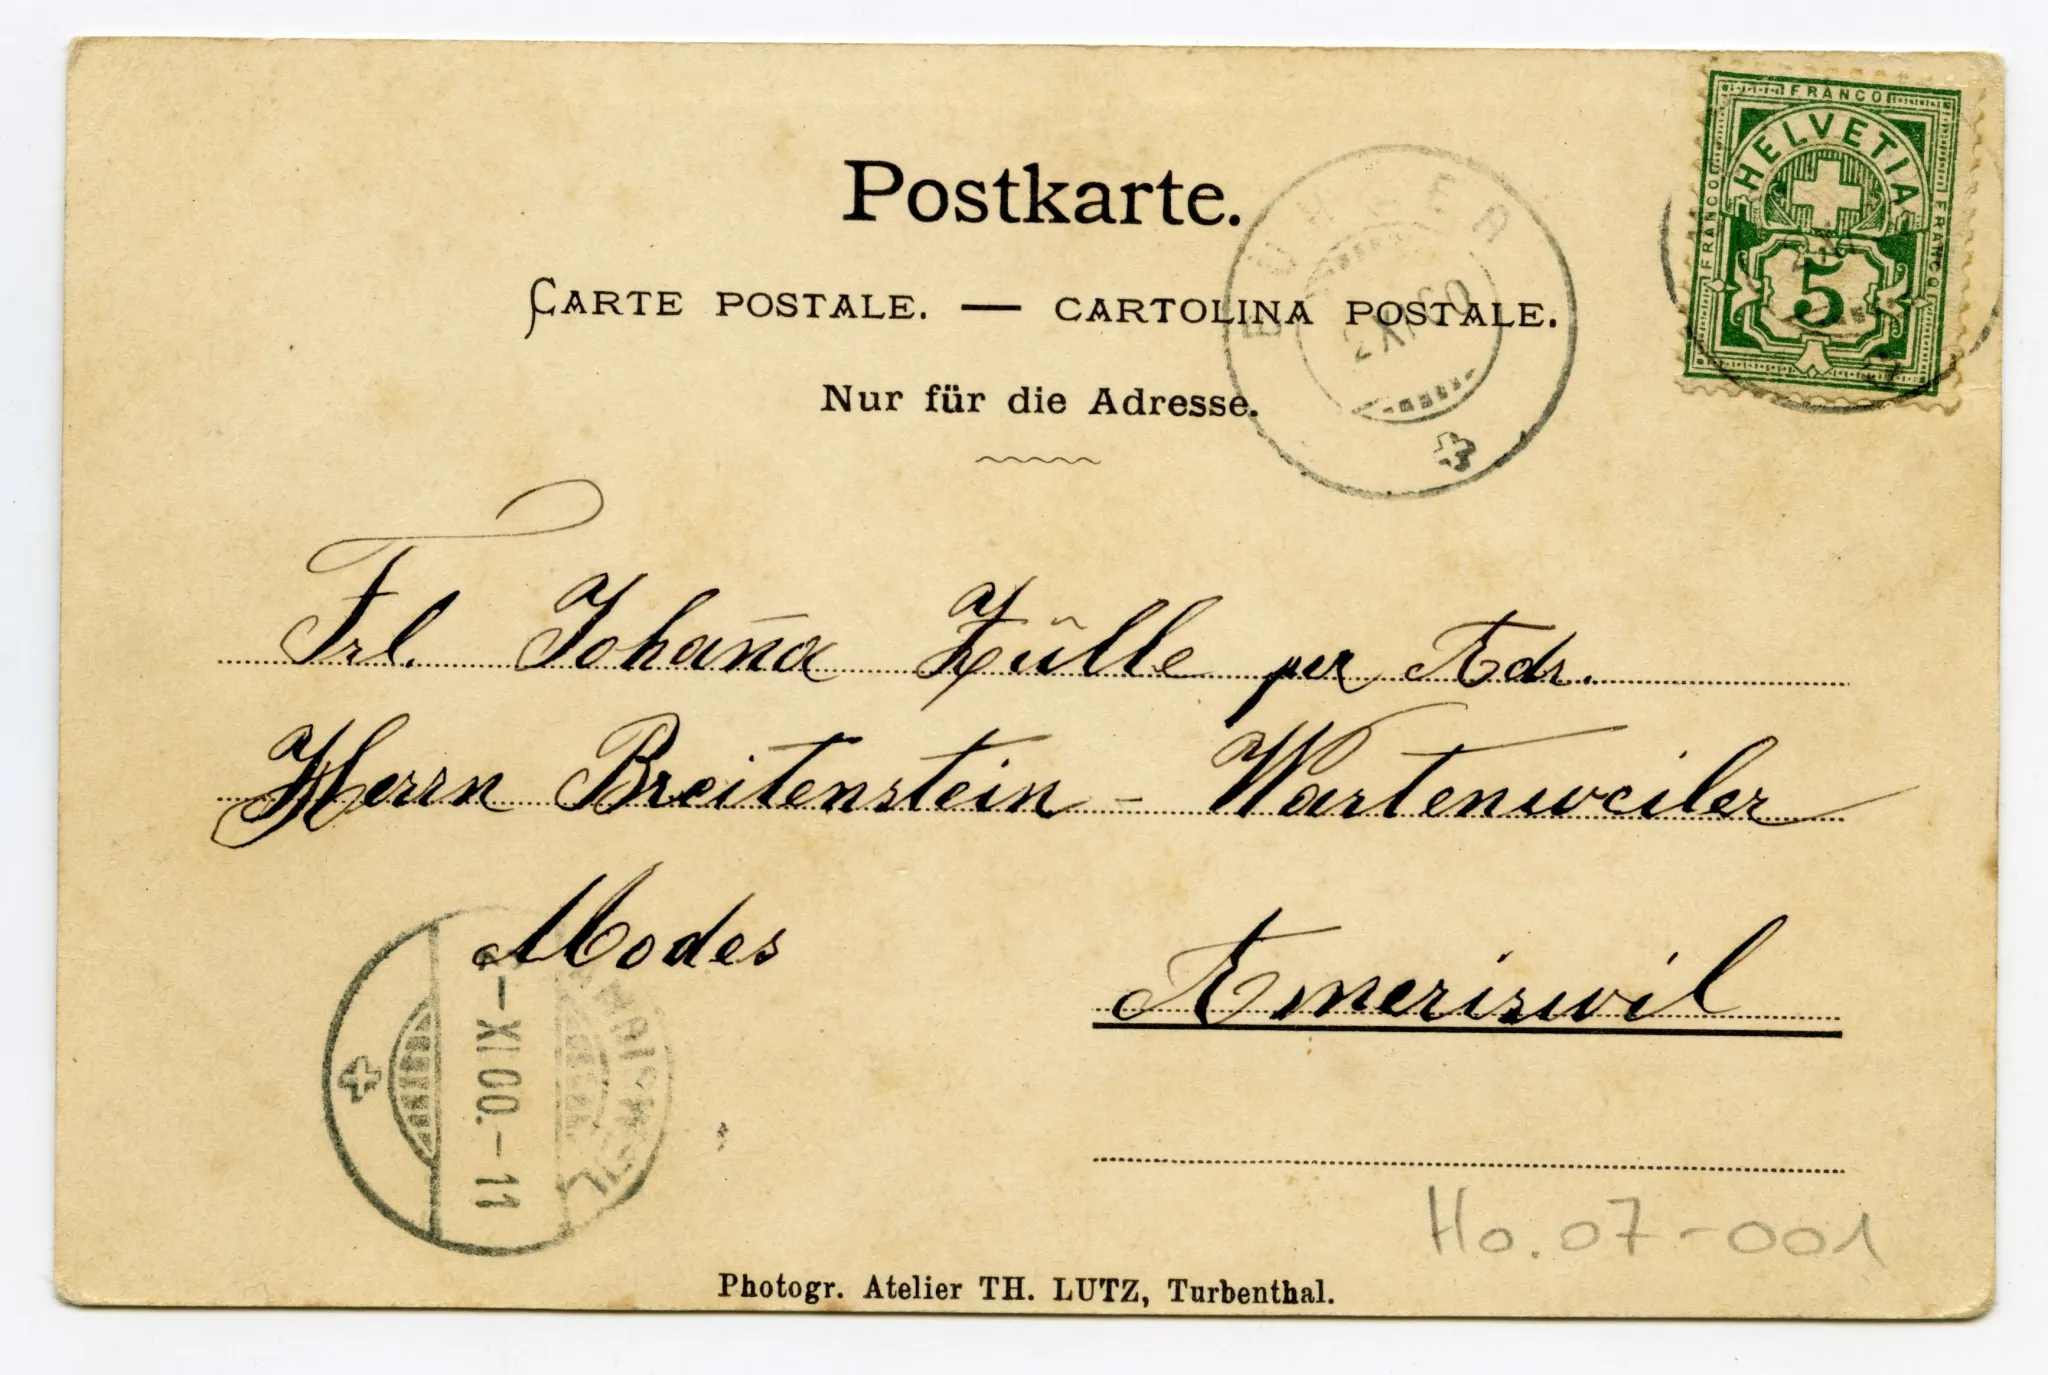 Postkarte.
CARTE POSTALE. — CARTOLINA POSTALE.
Nur für die Adresse.
FRANCO
FRANCO
FRANCO
HELVETIA
5
2 XI 00
Frl. Johan̄a Zülle per Adr.
Herrn Breitenstein - Wartenweiler
Modes
Ameriswil
-XI.00.-11
Ho. 07-001
Photogr. Atelier TH. LUTZ, Turbenthal.